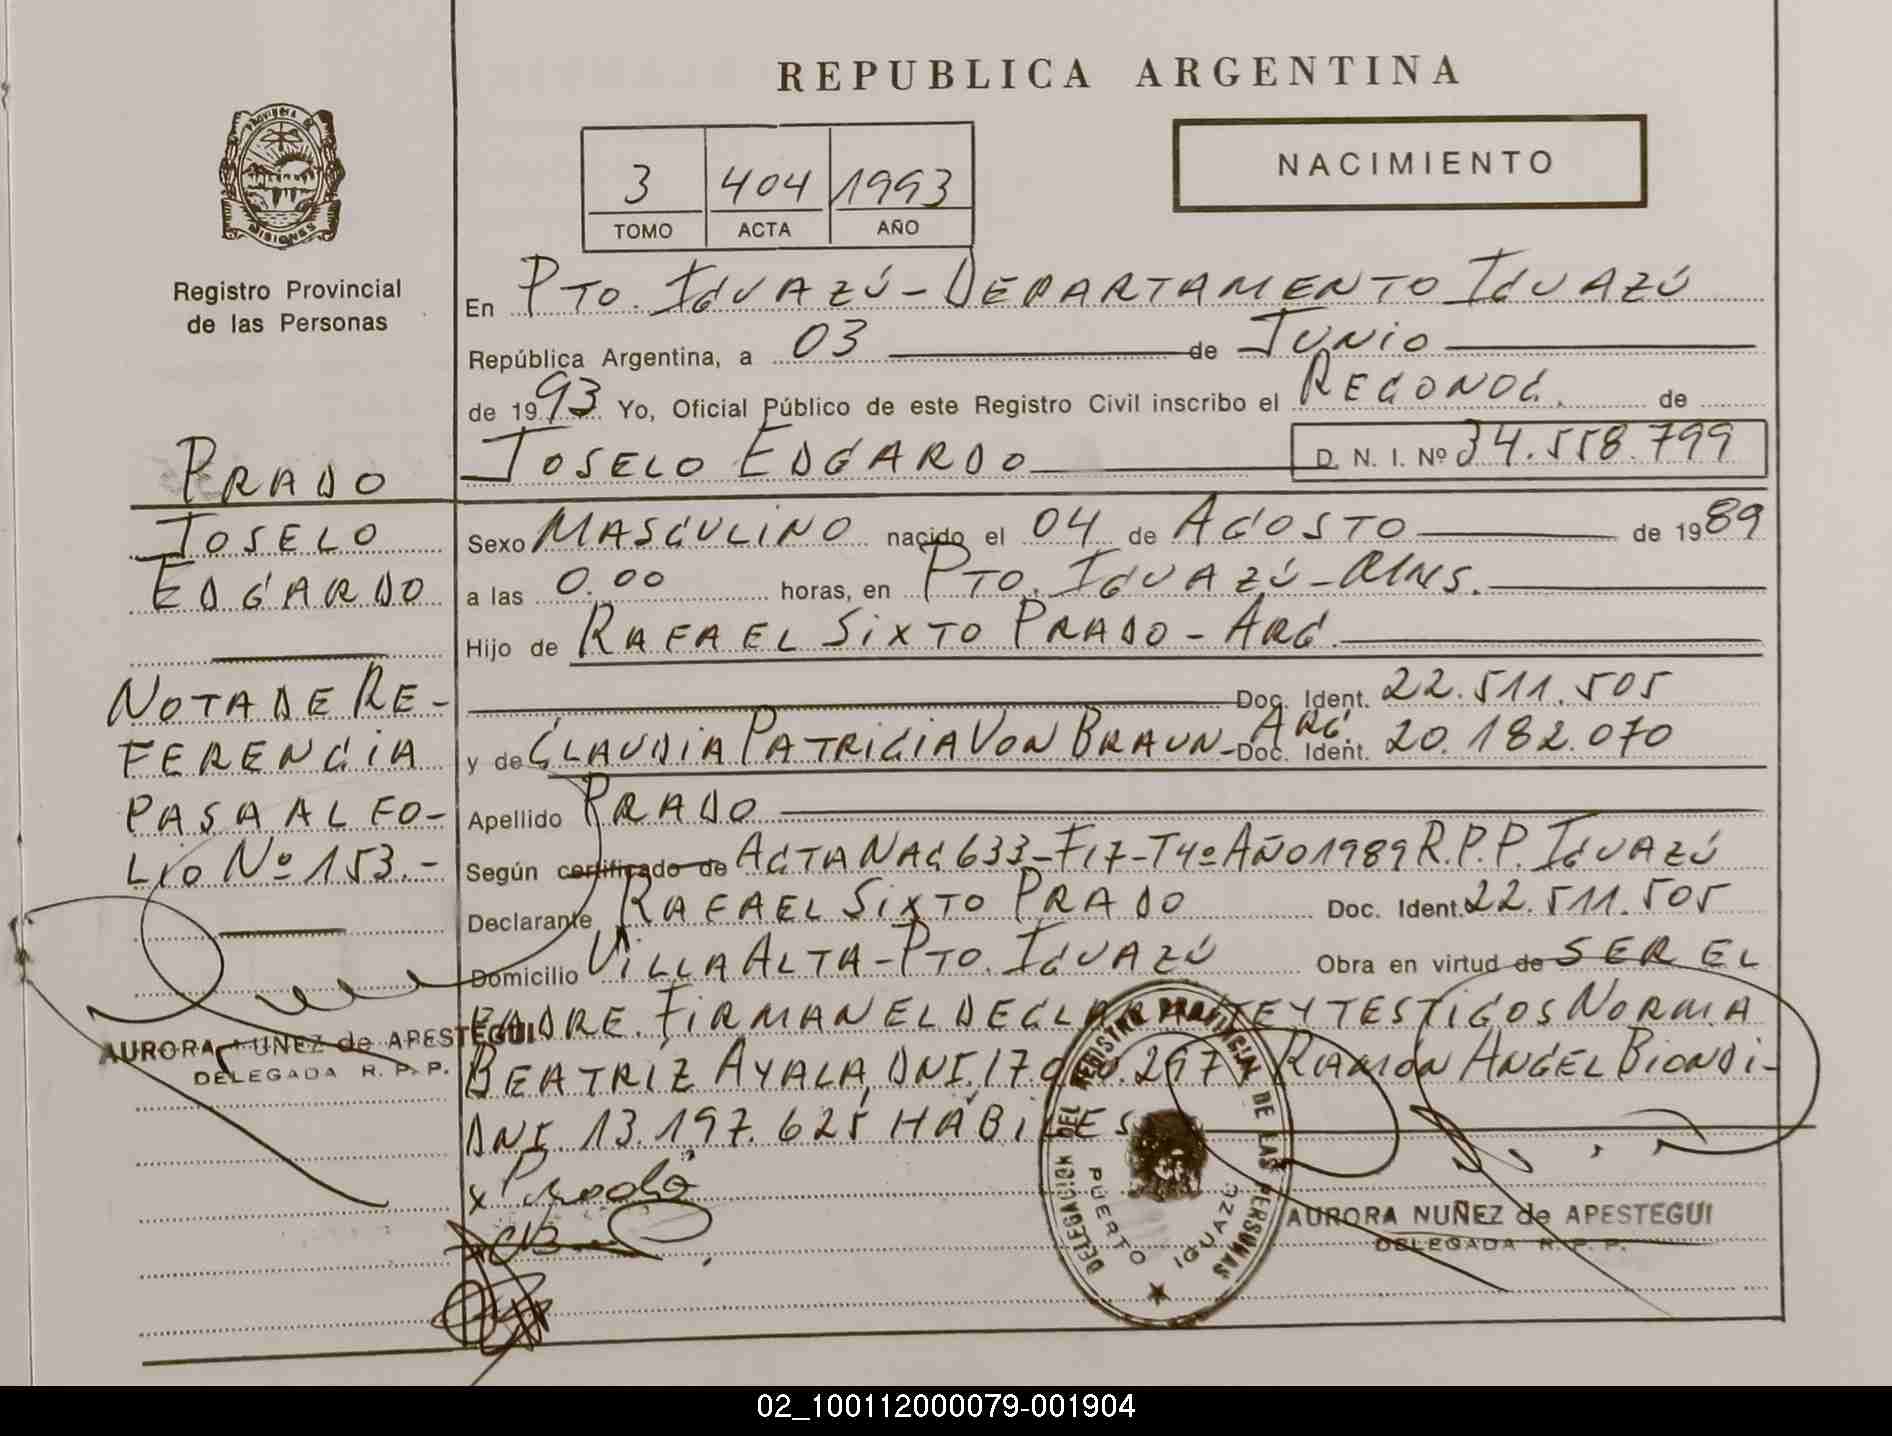 REPUBLICA ARGENTINA
PROVINCIA DE
MISIONES
Registro Provincial
de las Personas
NACIMIENTO
3 404 1993
TOMO ACTA AÑO
En PTO. IGUAZÚ - DEPARTAMENTO IGUAZÚ
República Argentina, a 03 de JUNIO
de 1993 Yo, Oficial Público de este Registro Civil inscribo el RECONOC. de
JOSELO EDGARDO D. N. I. Nº 34.558.799
PRADO
JOSELO
EDGARDO
NOTA DE RE-
FERENCIA
PASA AL FO-
LIO Nº 153.-
AURORA NUÑEZ de APESTEGUI
DELEGADA R. P. P.
Sexo MASCULINO nacido el 04 de AGOSTO de 1989
a las 0.00 horas, en PTO. IGUAZÚ - MNS.
Hijo de RAFAEL SIXTO PRADO - ARG.
Doc. Ident. 22.511.505
y de CLAUDIA PATRICIA VON BRAUN - ARG. Doc. Ident. 20.182.070
Apellido PRADO
Según certificado de ACTA NAC 633 - F17 - T4º AÑO 1989 R.P.P. IGUAZÚ
Declarante RAFAEL SIXTO PRADO Doc. Ident. 22.511.505
Domicilio VILLA ALTA - PTO. IGUAZÚ Obra en virtud de SER EL
PADRE. FIRMAN EL DECLARANTE Y TESTIGOS NORMA
BEATRIZ AYALA, DNI. 17. 297 Y RAMÓN ANGEL BIONDI -
DNI. 13.197.625 HÁBILES
x Prado
DELEGACION DEL REGISTRO PROVINCIAL DE LAS PERSONAS
PUERTO IGUAZU
AURORA NUÑEZ de APESTEGUI
DELEGADA R. P. P.
02_100112000079-001904